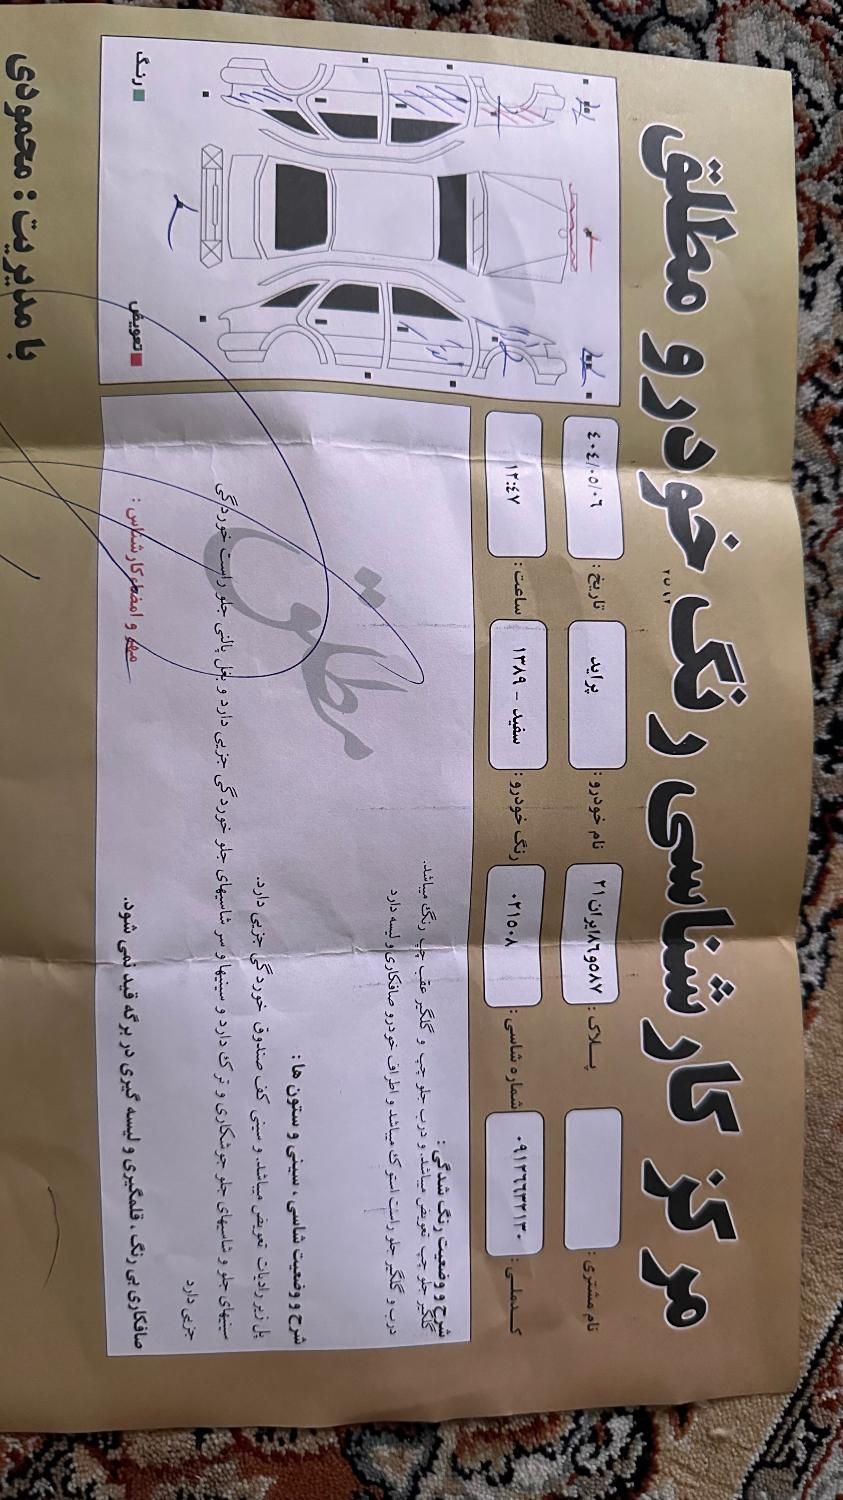 مرکز کارشناسی رنگ خودرو مطلق
نام مشتری :
پلاک : ۵۸۷و۸۶ایران۲۱
نام خودرو : پراید
تاریخ : ۴۰۴/۰۵/۰۶
کدملی : ۰۹۱۲۶۶۳۲۱۳۰
شماره شاسی : ۰۲۱۵۰۸
رنگ خودرو : سفید - ۱۳۸۹
ساعت : ۱۲:۴۷
شرح و وضعیت رنگ شدگی :
گلگیر جلو چپ تعویض میباشد. و درب جلو چپ و گلگیر عقب چپ رنگ میباشد.
درب و گلگیر جلو راست استوک میباشد و اطراف خودرو صافکاری و لیسه دارد
شرح و وضعیت شاسی ، سینی و ستون ها :
پل زیر رادیات تعویض میباشد. و سینی کف صندوق خوردگی جزیی دارد.
سینیهای جلو و شاسیهای جلو جوشکاری و ترک دارد و سینیها و سر شاسیهای جلو خوردگی جزیی دارد و بغل پالنی جلو راست خوردگی
جزیی دارد
صافکاری بی رنگ ، قلمگیری و لیسه گیری در برگه قید نمی شود.
مهر و امضاء کارشناس :
مطلق
رنگ
تعویض
با مدیریت : محمودی